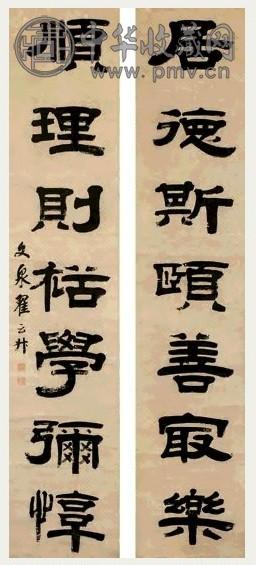 中华收藏网
www.pmv.cn
居德斯頤善冣樂
順理則裕學彌惇
文泉翟云升